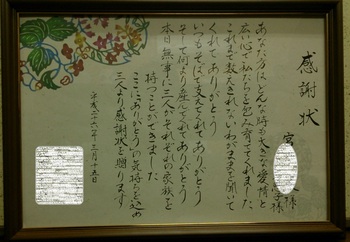 感謝状
宮
様
あなた方はどんな時も大きな愛情と
広い心で私たちを包み育ててくれました
これまで数えきれないわがままを聞いて
くれてありがとう
いつもそばで支えてくれてありがとう
そして何より産んでくれてありがとう
本日無事に三人がそれぞれの家族を
持つことができました
ここにありがとうの気持ちを込め
三人より感謝状を贈ります
平成二十六年三月十五日